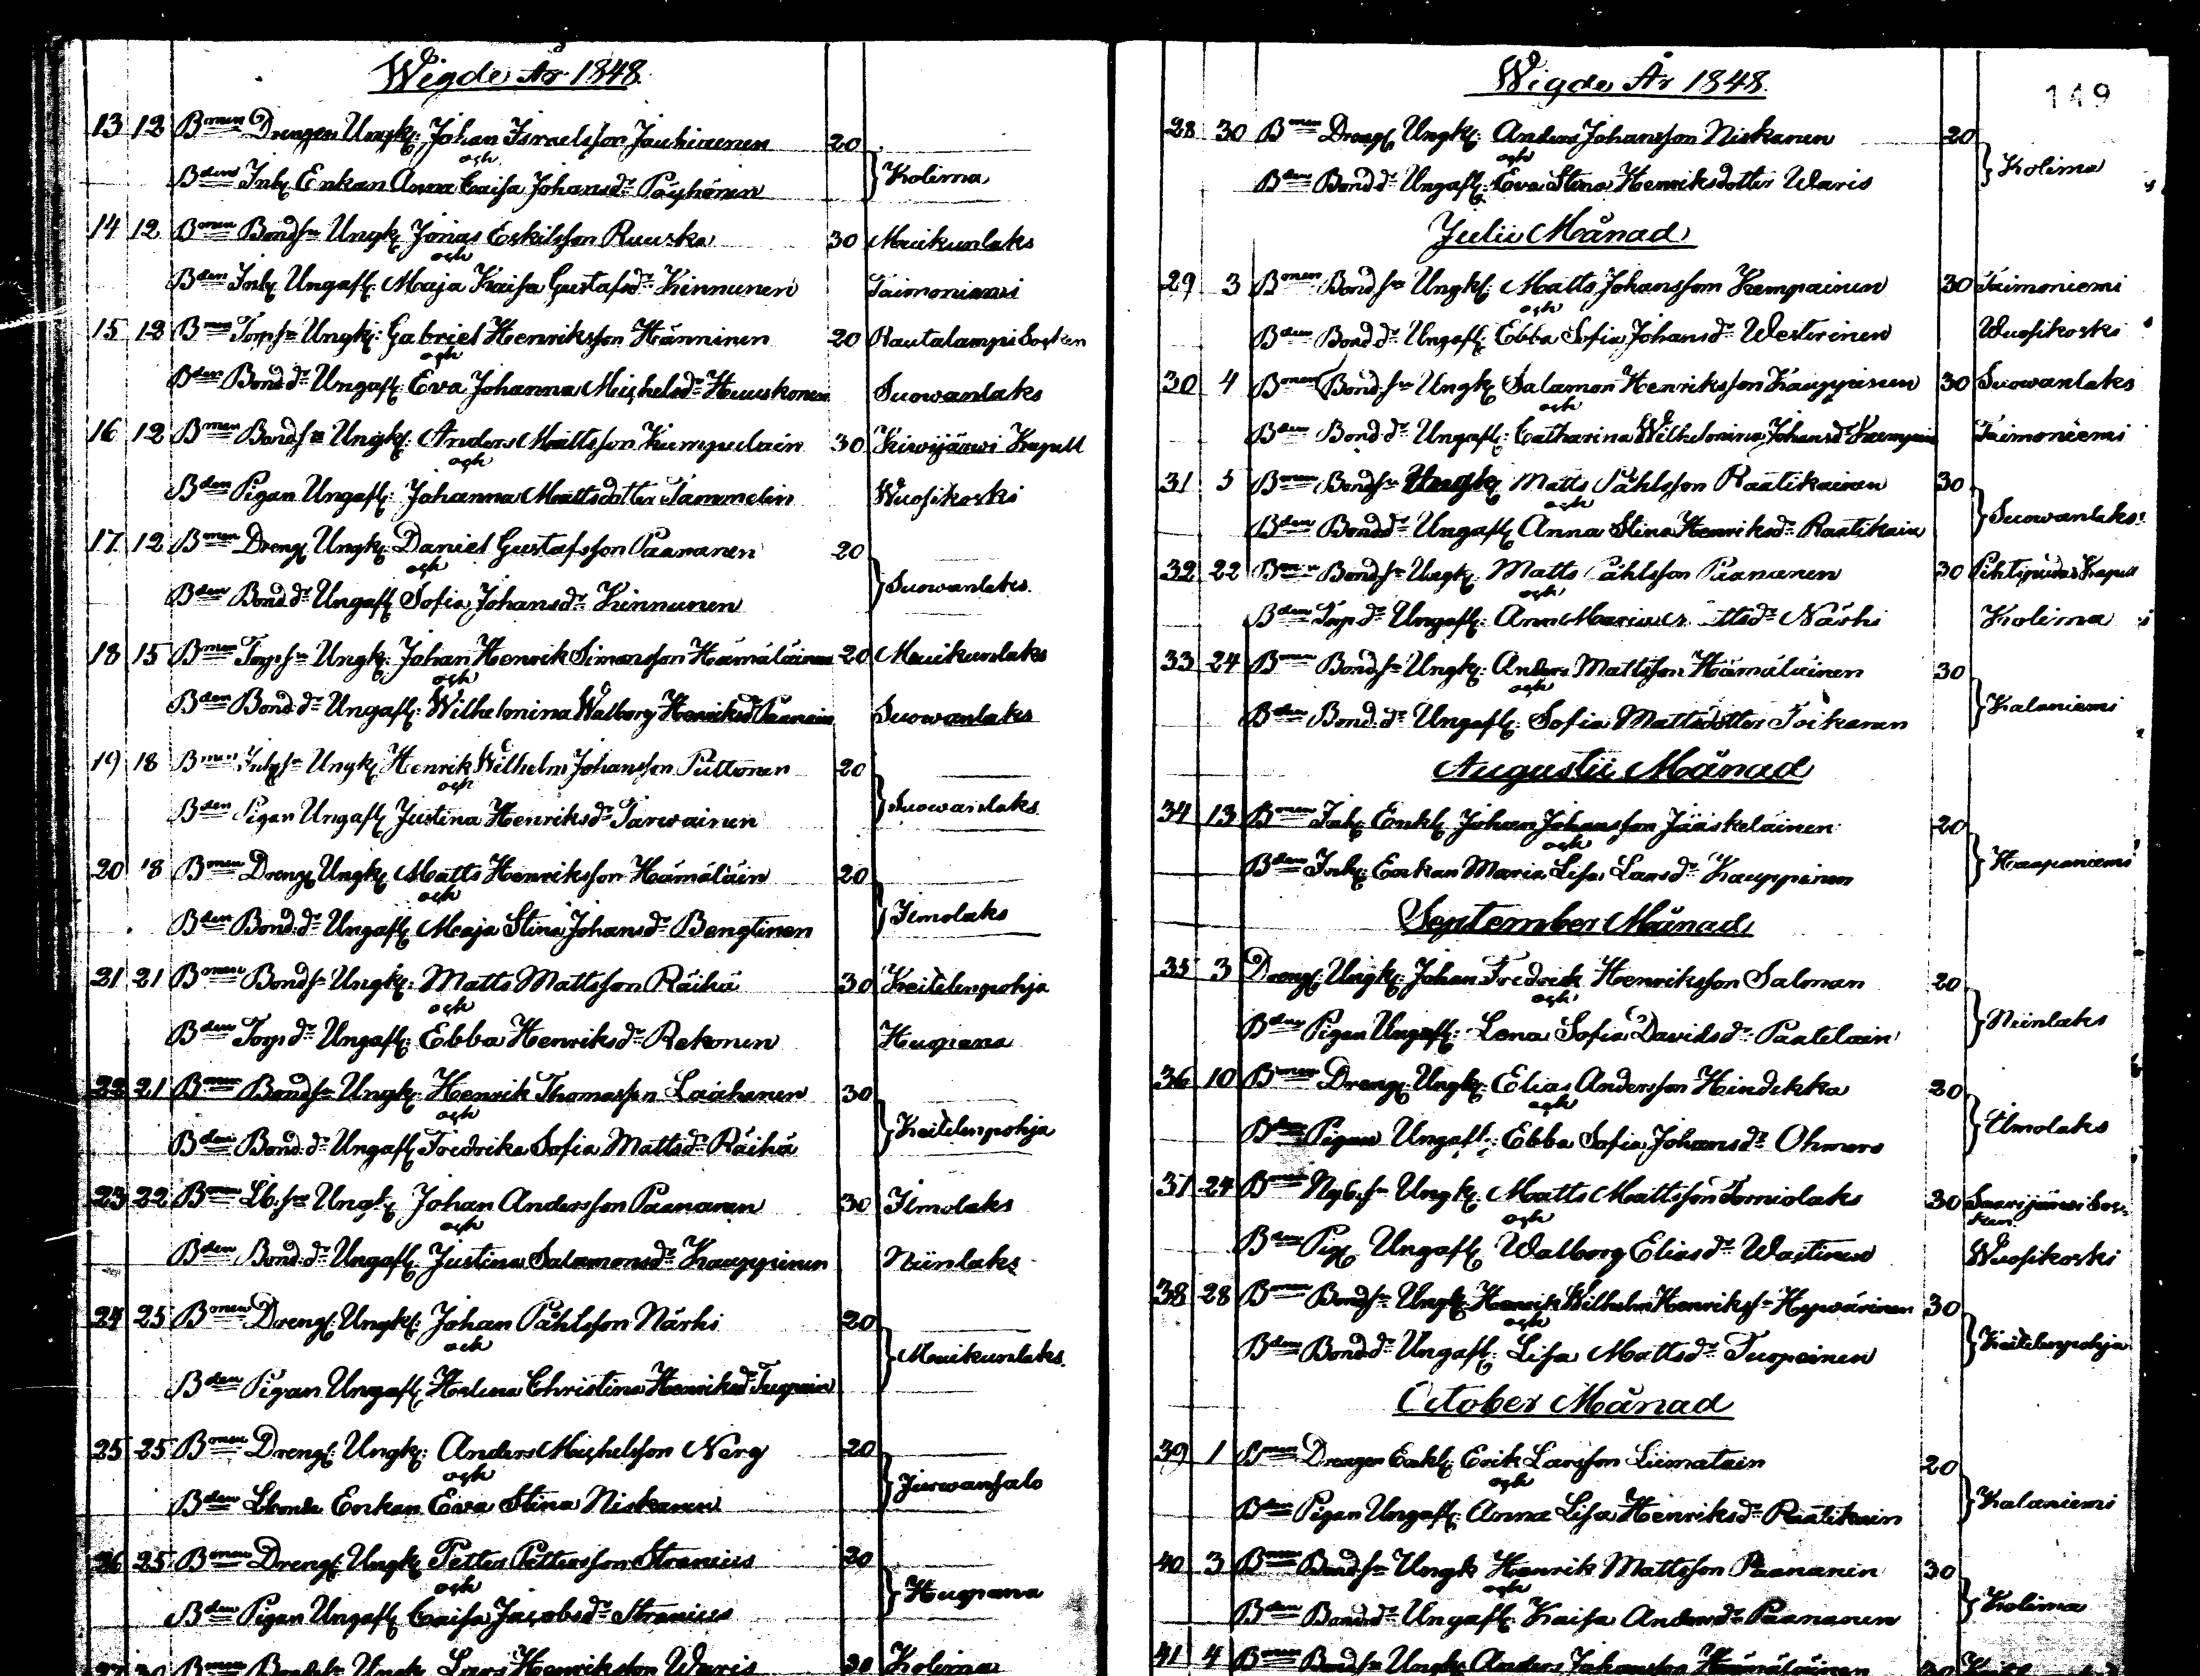 Wigde År 1848.
13 12 Bmen Drengen Ungk: Johan Israelsson Jauhiainen 20
och
Bden Inh: Enkan Anna Caisa Johansdr Pöyhönen } Kolima
14 12 Bmen Bondsn Ungk: Jonas Eskilsson Ruuska 30 Muikunlaks
och
Bden Inh: Ungafl: Maja Kaisa Gustafsdr Kinnunen Taimoniemi
15 12 Bmen Torpsn Ungk: Gabriel Henriksson Hänninen 20 Rautalampi Socken
och
Bden Bond.dr Ungafl: Eva Johanna Michelsdr Huuskonen Suowanlaks
16 12 Bmen Bondsn Ungk: Anders Mattsson Kumpulain 30 Kiwijärwi Kapell
och
Bden Pigan Ungafl: Johanna Mattsdotter Tammelin Wuosikoski
17 12 Bmen Dreng: Ungk: Daniel Gustafsson Paananen 20
och
Bden Bond.dr Ungafl: Sofia Johansdr Kinnunen } Suowanlaks.
18 15 Bmen Torpsn Ungk: Johan Henrik Simonsson Hämäläinen 20 Muikunlaks
och
Bden Bond.dr Ungafl: Wilhelmina Walborg Henriksd Paanain Suowanlaks
19 18 Bmen Inhsn Ungk: Henrik Wilhelm Johansson Puttonen 20
och
Bden Pigan Ungafl: Justina Henriksdr Tarwainen } Suowanlaks.
20 18 Bmen Dreng: Ungk: Matts Henriksson Hämäläin 20
och
Bden Bond.dr Ungafl: Maja Stina Johansdr Bengtinen } Ilmolaks
21 21 Bmen Bondsn Ungk: Matts Mattsson Räihä 30 Keitelenpohja
och
Bden Torpdr Ungafl: Ebba Henriksdr Rekonen Huopana
22 21 Bmen Bondsn Ungk: Henrik Thomasson Laahanen 30
och
Bden Bond.dr Ungafl: Fredrika Sofia Mattsdr Räihä } Keitelenpohja
23 22 Bmen Lb.sn Ungk: Johan Andersson Paananen 30 Ilmolaks
och
Bden Bond.dr Ungafl: Justina Salamonsdr Kauppinen Niinlaks
24 25 Bmen Dreng: Ungk: Johan Påhlsson Närhi 20
och
Bden Pigan Ungafl: Helena Christina Henriksd Turpein } Muikunlaks.
25 25 Bmen Dreng: Ungk: Anders Michelsson Nerg 20
och
Bden Lbonde Enkan Eva Stina Niskanen } Jurwansalo
26 25 Bmen Dreng: Ungk: Petter Pettersson Stranius 20
och
Bden Pigan Ungafl: Caisa Jacobsdr Stranius } Huopana
27 30 Bmen Bondsn Ungk: Lars Henriksson Waris 30 Kolima
Wigde År 1848.
149
28 30 Bmen Dreng: Ungk: Anders Johansson Niskanen 20
och
Bden Bond.dr Ungafl: Eva Stina Henriksdotter Waris } Kolima
Julii Månad
29 3 Bmen Bondsn Ungk: Matts Johansson Kempainen 30 Taimoniemi
och
Bden Bond.dr Ungafl: Ebba Sofia Johansdr Westerinen Wuosikoski
30 4 Bmen Bondsn Ungk: Salamon Henriksson Kauppinen 30 Suowanlaks
och
Bden Bond.dr Ungafl: Catharina Wilhelmina Johansd Kempain Taimoniemi
31 5 Bmen Bondsn Ungk: Matts Påhlsson Raatikainen 30
och
Bden Bond.dr Ungafl: Anna Stina Henriksdr Raatikain } Suowanlaks.
32 22 Bmen Bondsn Ungk: Matts Påhlsson Paananen 30 Pihtipudas Kapell
och
Bden Torpdr Ungafl: Anna Maria Mattsdr Närhi Kolima
33 24 Bmen Bondsn Ungk: Anders Mattsson Hämäläinen 30
och
Bden Bond.dr Ungafl: Sofia Mattsdotter Toikanen } Kalaniemi
Augustii Månad
34 13 Bmen Inh: Enkl: Johan Johansson Jääskeläinen 20
och
Bden Inh: Enkan Maria Lisa Larsdr Kauppinen } Haapaniemi
September Månad
35 3 Dreng: Ungk: Johan Fredrik Henriksson Salman 20
och
Bden Pigan Ungafl: Lena Sofia Davidsdr Paatelain } Niinlaks
36 10 Bmen Dreng: Ungk: Elias Andersson Hindikka 20
och
Bden Pigan Ungafl: Ebba Sofia Johansdr Ohmero } Ilmolaks
37 24 Bmen Nyb.sn Ungk: Matts Mattsson Torniolaks 30 Saarijärwi Soc-
ken
och
Bden Pig: Ungafl: Walborg Eliasdr Waitinen Wuosikoski
38 28 Bmen Bondsn Ungk: Henrik Wilhelm Henrikssn Hywärinen 30
och
Bden Bond.dr Ungafl: Lisa Mattsdr Turpeinen } Keitelenpohja
October Månad
39 1 Bmen Drengen Enkl: Erik Larsson Liimatain 20
och
Bden Pigan Ungafl: Anna Lisa Henriksdr Raatikain } Kalaniemi
40 3 Bmen Bondsn Ungk: Henrik Mattsson Paananen 30
och
Bden Bond.dr Ungafl: Kaisa Andersdr Paananen } Kolima
41 4 Bmen Bondsn Ungk: Anders Johansson Hämäläinen 30